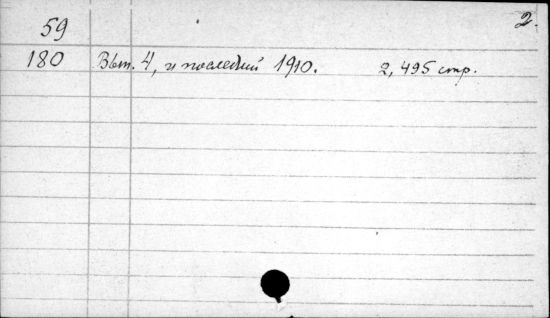 2.
59
180 Вып. 4, и последний 1910. 2, 495 стр.